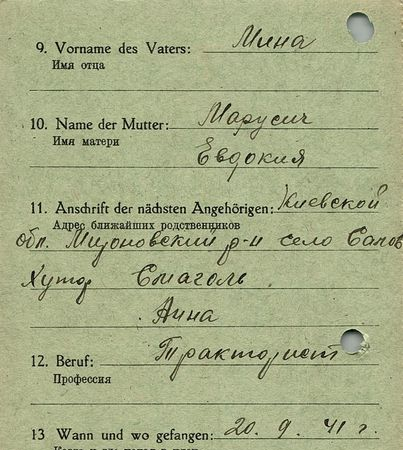 9. Vorname des Vaters: Мина
Имя отца
10. Name der Mutter: Марусич
Имя матери
Евдокия
11. Anschrift der nächsten Angehörigen: Киевской
Адрес ближайших родственников
обл. Мироновский р-н село
Хутор Смаголь
Анна
12. Beruf: Тракторист
Профессия
13 Wann und wo gefangen: 20. 9. 41 г.